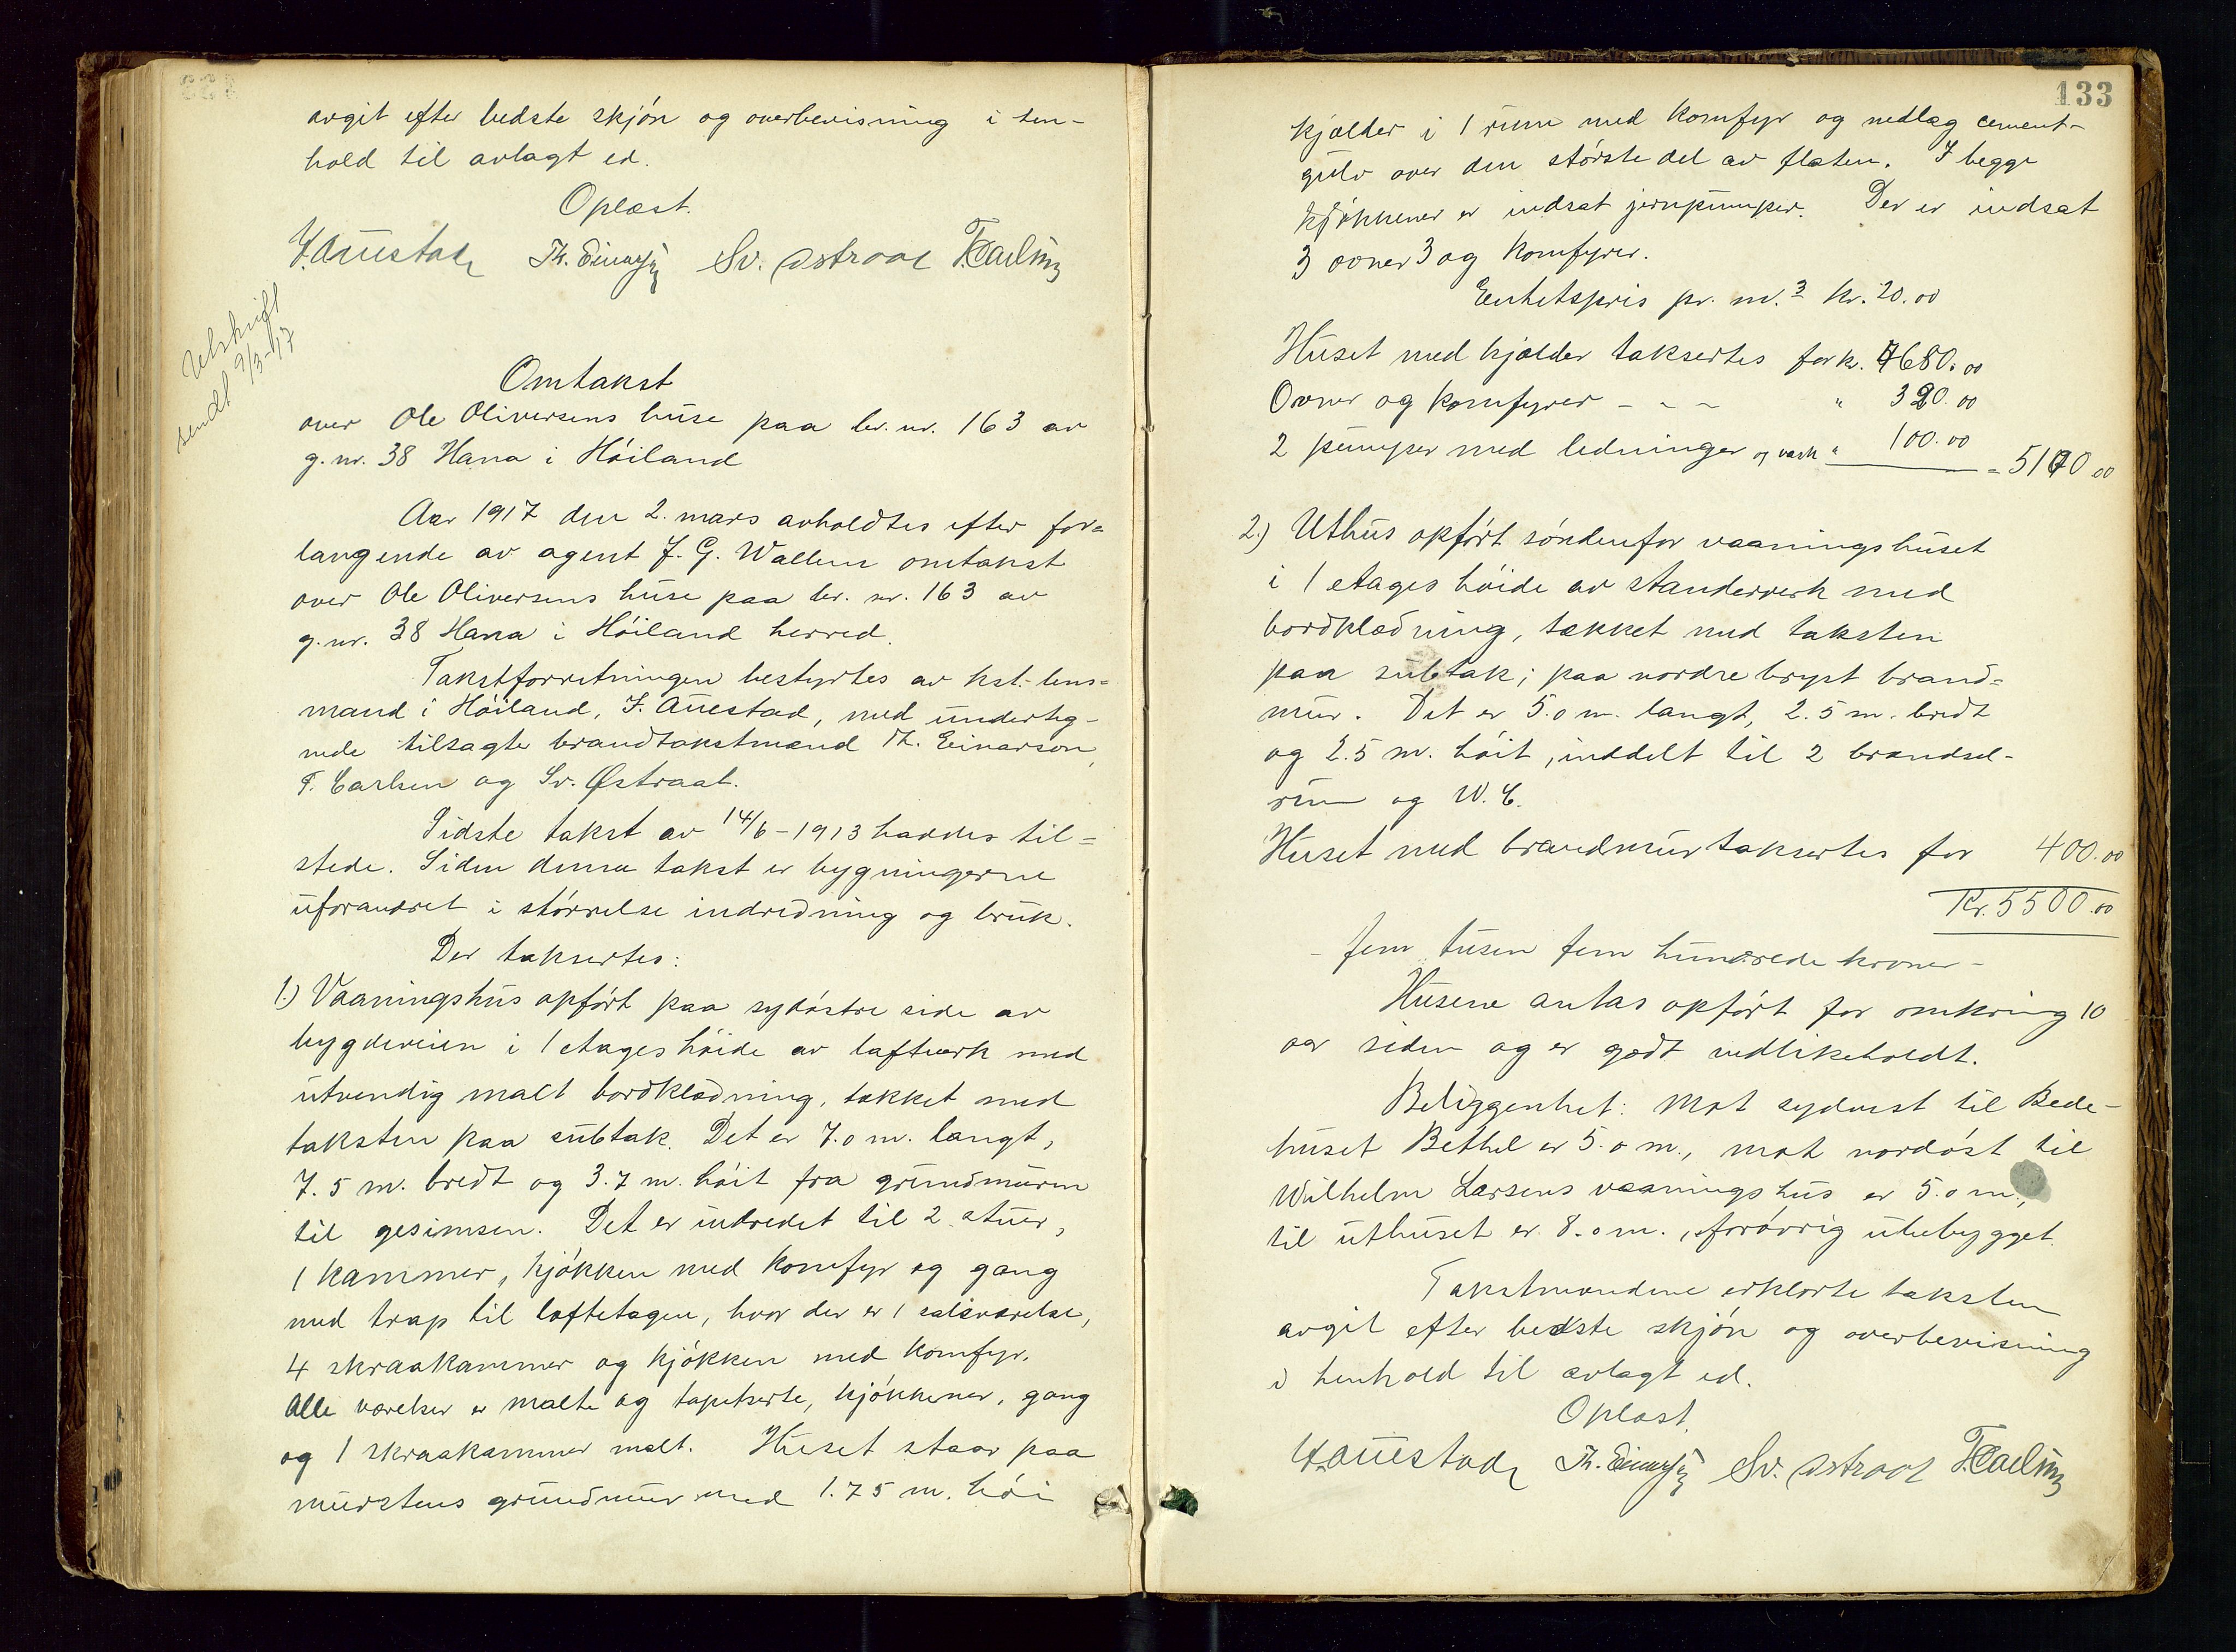 avgit efter bedste skjøn og overbevisning i hen-
hold til avlagt ed.
Oplæst.
J. Auestad Th. Einarson Sv. Østraat T. Carlsen
Utskrift
sendt 9/3-17
Omtakst
over Ole Oliversens huse paa br. nr. 163 av
g. nr. 38 Hana i Høiland
Aar 1917 den 2. mars avholdtes efter for-
langende av agent J. G. Wallem omtakst
over Ole Oliversens huse paa br. nr. 163 av
g. nr. 38 Hana i Høiland herred.
Takstforretningen bestyrtes av kst. lens-
mand i Høiland, J. Auestad, med underteg-
nede tilsagte brandtakstmænd Th. Einarson,
T. Carlsen og Sv. Østraat.
Sidste takst av 14/6-1913 haddes til-
stede. Siden denne takst er bygningerne
uforandret i størrelse indredning og bruk.
Der taksertes:
1.) Vaaningshus opført paa sydøstre side av
bygdeveien i 1 etages høide av laftverk med
utvendig malt bordklædning, tækket med
taksten paa subtak. Det er 7.0 m. langt,
7.5 m. bredt og 3.7 m. høit fra grundmuren
til gesimsen. Det er indredet til 2 stuer,
1 kammer, kjøkken med komfyr og gang
med trap til loftetagen, hvor der er 1 salsværelse,
4 skraakammer og kjøkken med komfyr.
Alle værelser er malte og tapetserte, kjøkkener, gang
og 1 skraakammer malt. Huset staar paa
murstens grundmur med 1.75 m. høi
133
kjælder i 1 rum med komfyr og nedlag cement-
gulv over den største del av flaten. I begge
kjøkkener er indsat jernpumper. Der er indsat
3 ovner og 3 komfyrer.
Enhetspris pr. m.3 kr. 20.00
Huset med kjælder taksertes for kr. 4680.00
Ovner og komfyrer - - - " 320.00
2 pumper med ledninger og vask " 100.00 = 5100.00
2.) Uthus opført søndenfor vaaningshuset
i 1 etages høide av standerverk med
bordklædning, tækket med taksten
paa subtak; paa nordre bryst brand-
mur. Det er 5.0 m. langt, 2.5 m. bredt
og 2.5 m. høit, inddelt til 2 brændsel-
rum og W. C.
Huset med brandmur taksertes for 400.00
Kr. 5500.00
- fem tusen fem hundrede kroner -
Husene antas opført for omkring 10
aar siden og er godt vedlikeholdt.
Beliggenhet: Mot sydvest til Bede-
huset Bethel er 5.0 m., mot nordøst til
Wilhelm Larsens vaaningshus er 5.0 m.,
til uthuset er 8.0 m., forøvrig ubebygget.
Takstmændene erklærte taksten
avgit efter bedste skjøn og overbevisning
i henhold til avlagt ed.
Oplæst.
J. Auestad Th. Einarson Sv. Østraat T. Carlsen